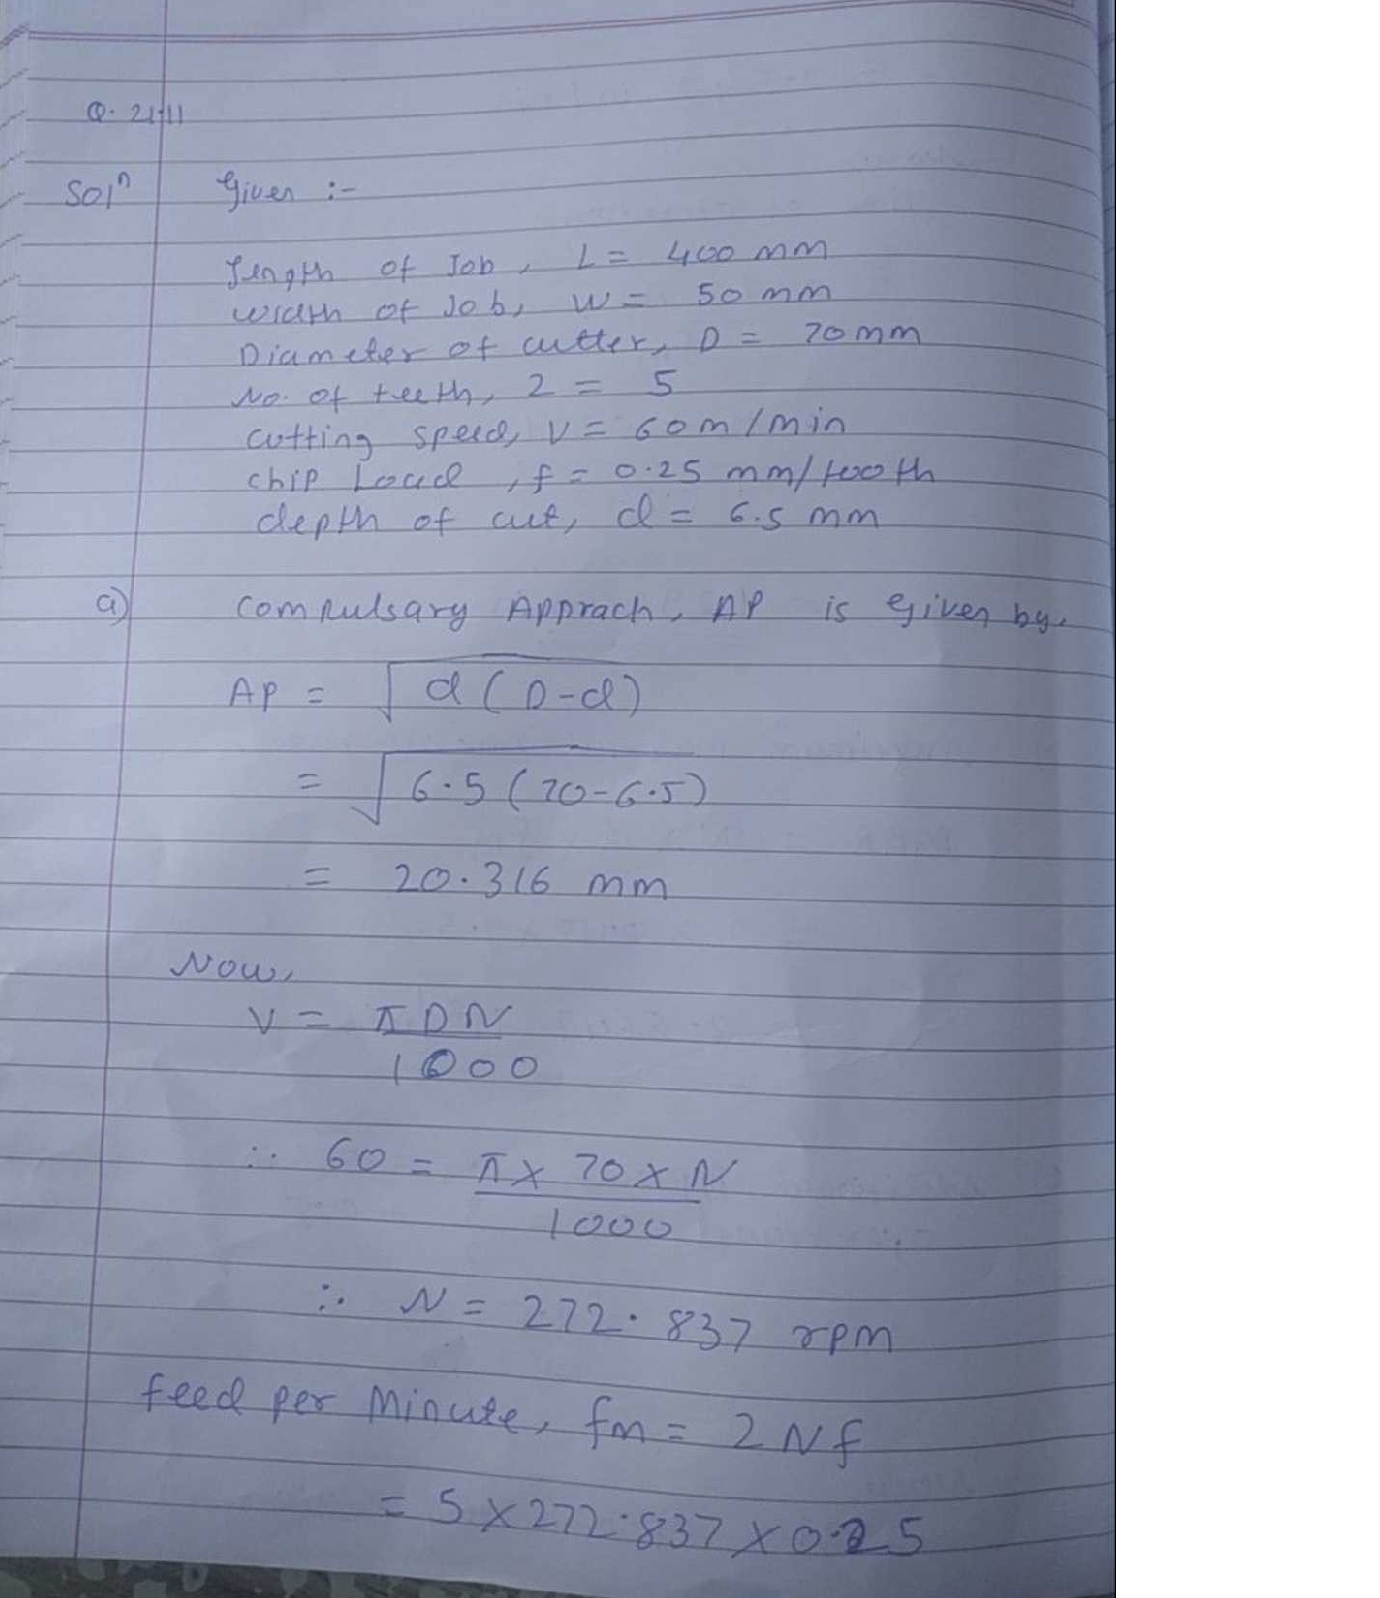 Q. 21.11
Solⁿ Given :-
Length of Job, L = 400 mm
width of Job, w = 50 mm
Diameter of cutter, D = 70 mm
No. of teeth, Z = 5
cutting speed, V = 60 m/min
chip Load, f = 0.25 mm/tooth
depth of cut, d = 6.5 mm
a) Compulsary Apprach, AP is given by,
AP = √d(D-d)
= √6.5(70-6.5)
= 20.316 mm
Now,
V = πDN
1000
∴ 60 = π x 70 x N
1000
∴ N = 272.837 rpm
feed per Minute, fm = ZNf
= 5 x 272.837 x 0.25